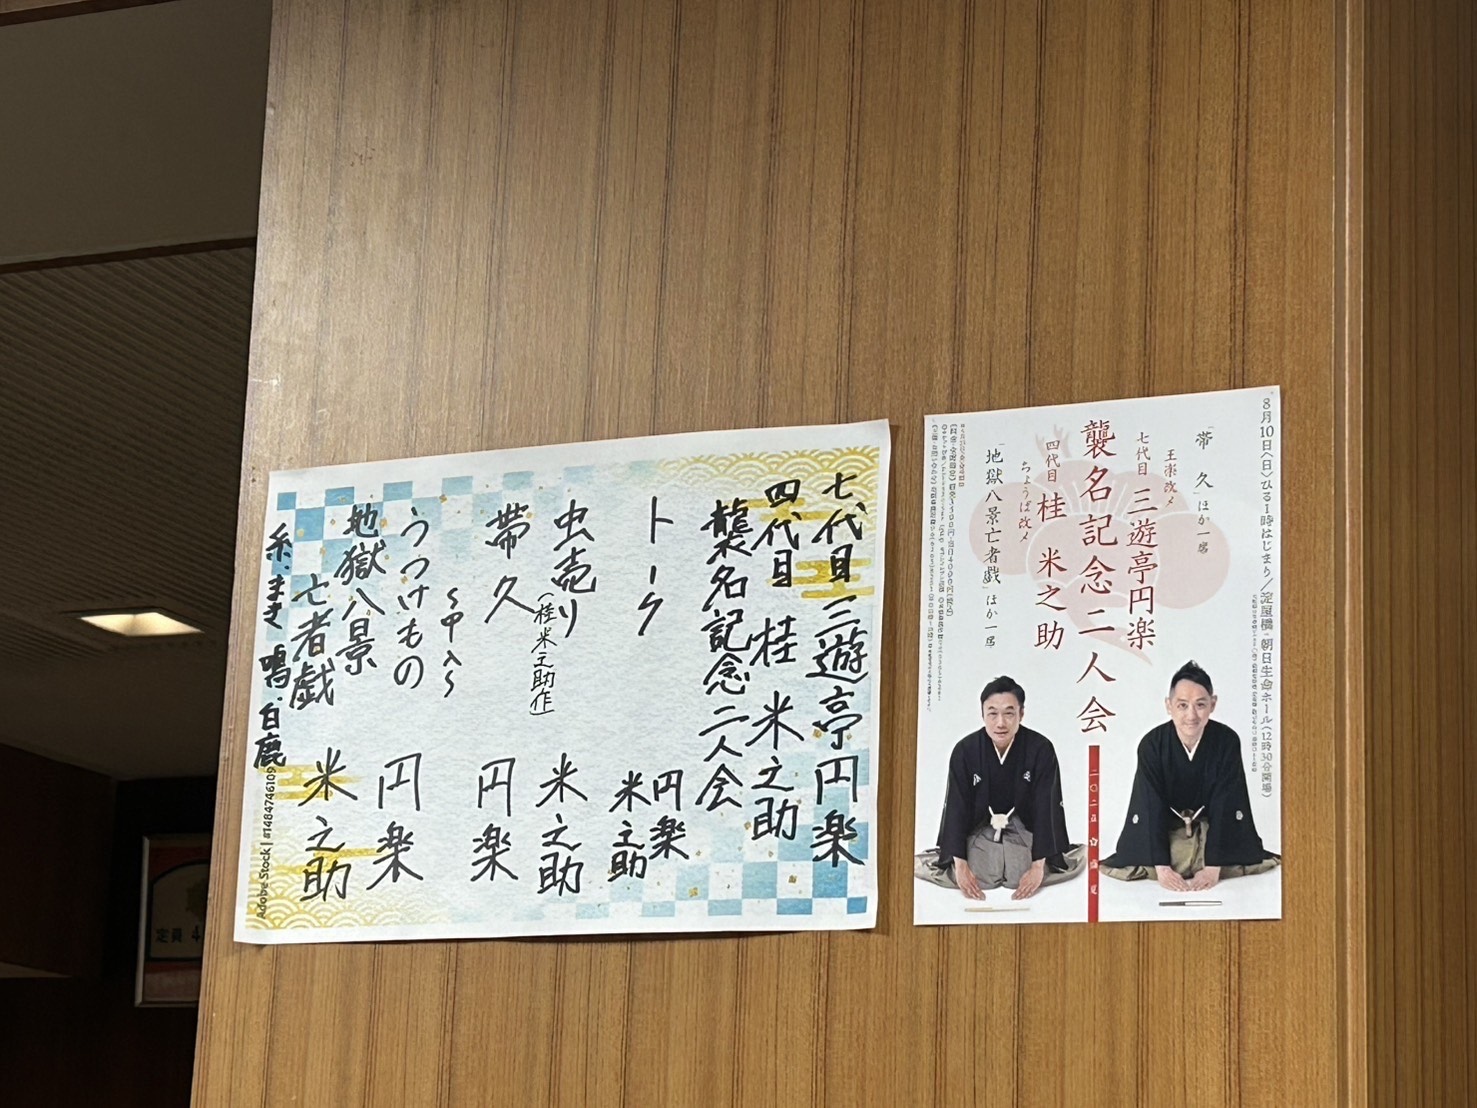 七代目 三遊亭円楽
四代目 桂 米之助
襲名記念二人会
トーク 円楽 米之助
虫売り(桂米之助作) 米之助
帯久 円楽
~中入~
うつけもの 円楽
地獄八景
亡者戯 米之助
糸・まき 鳴・白鹿
Adobe Stock | #1484746109
8月10日〈日〉ひる1時はじまり/淀屋橋・朝日生命ホール(12時30分開場)
「帯 久」ほか一席
王楽改メ
七代目 三遊亭円楽
襲名記念二人会
四代目 桂 米之助
ちょうば改メ
「地獄八景亡者戯」ほか一席
定員 4